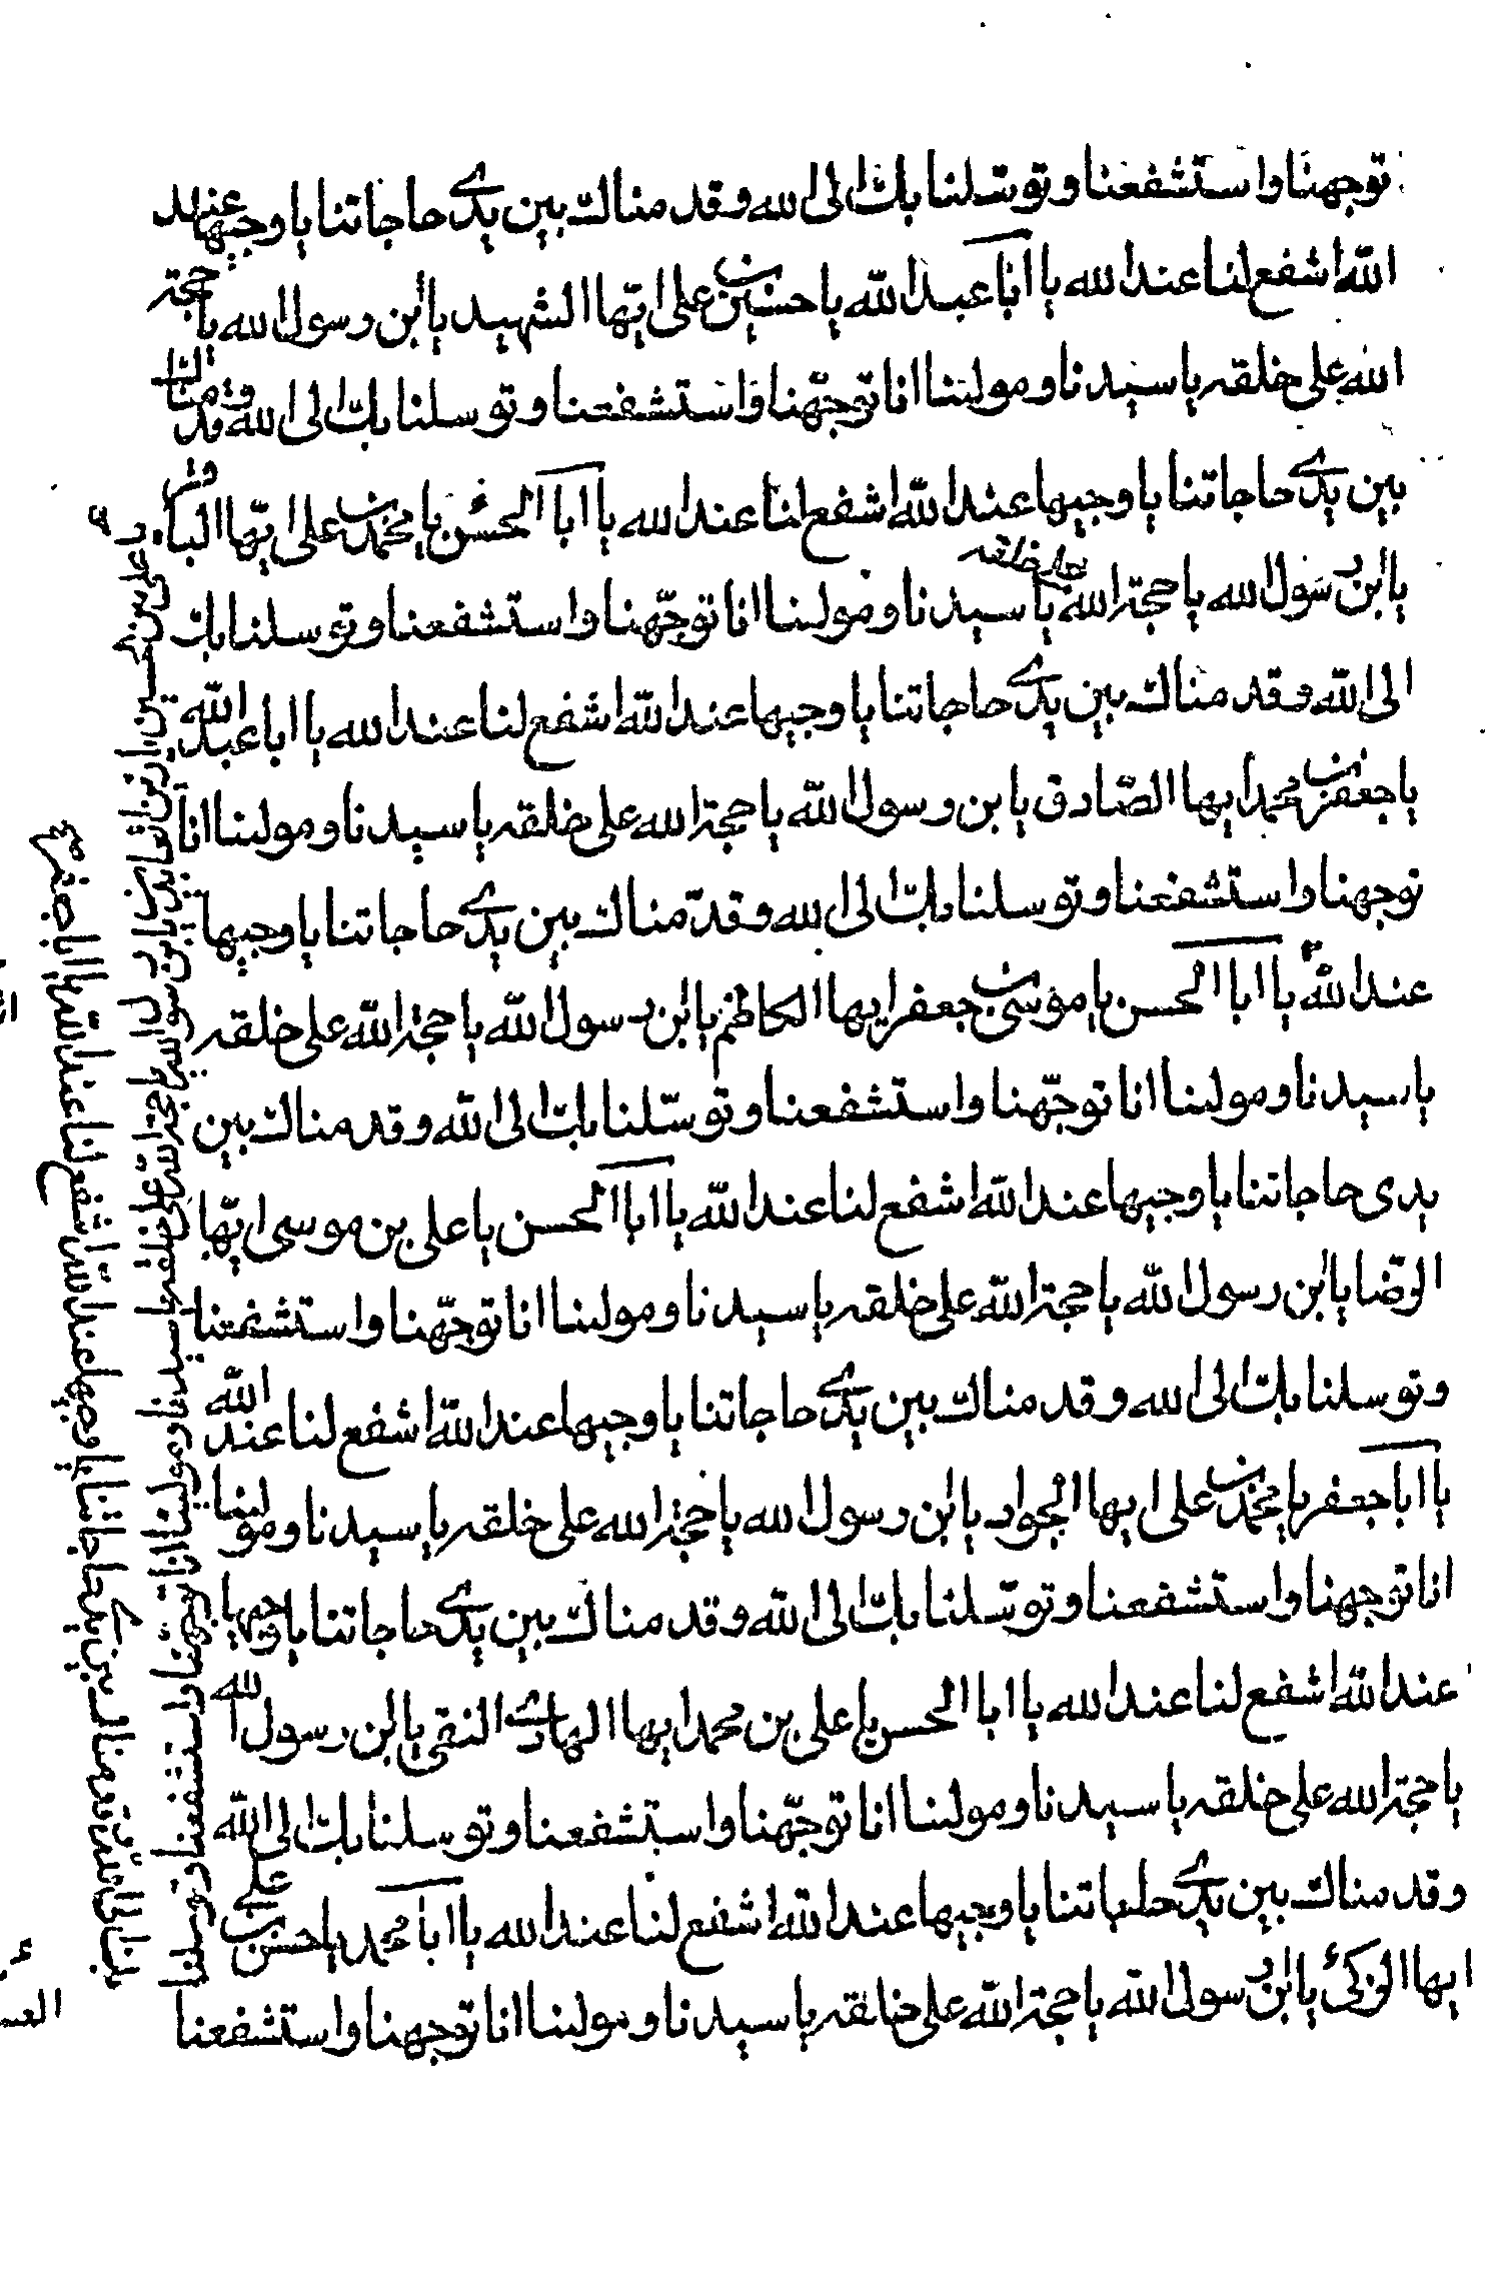 توجهنا واستشفعنا وتوسلنا بك الى الله وقدمناك بين يدى حاجاتنا يا وجيها عند
الله اشفع لنا عند الله يا ابا عبد الله يا حسين بن على ايها الشهيد يا ابن رسول الله يا حجة
الله على خلقه يا سيدنا ومولينا انا توجهنا واستشفعنا وتوسلنا بك الى الله وقدمناك
بين يدى حاجاتنا يا وجيها عند الله اشفع لنا عند الله يا ابا الحسن يا محمد بن على ايها الباقر
يا ابن رسول الله يا حجة الله على خلقه يا سيدنا ومولينا انا توجهنا واستشفعنا وتوسلنا بك
الى الله وقدمناك بين يدى حاجاتنا يا وجيها عند الله اشفع لنا عند الله يا ابا عبد الله
يا جعفر بن محمد ايها الصادق يا بن رسول الله يا حجة الله على خلقه يا سيدنا ومولينا انا
توجهنا واستشفعنا وتوسلنا بك الى الله وقدمناك بين يدى حاجاتنا يا وجيها
عند الله يا ابا الحسن يا موسى بن جعفر ايها الكاظم يا ابن رسول الله يا حجة الله على خلقه
يا سيدنا ومولينا انا توجهنا واستشفعنا وتوسلنا بك الى الله وقدمناك بين
يدى حاجاتنا يا وجيها عند الله اشفع لنا عند الله يا ابا الحسن يا على بن موسى ايها
الرضا يا ابن رسول الله يا حجة الله على خلقه يا سيدنا ومولينا انا توجهنا واستشفعنا
وتوسلنا بك الى الله وقدمناك بين يدى حاجاتنا يا وجيها عند الله اشفع لنا عند الله
يا ابا جعفر يا محمد بن على ايها الجواد يا ابن رسول الله يا حجة الله على خلقه يا سيدنا ومولينا
انا توجهنا واستشفعنا وتوسلنا بك الى الله وقدمناك بين يدى حاجاتنا يا وجيها
عند الله اشفع لنا عند الله يا ابا الحسن يا على بن محمد ايها الهادى النقى يا ابن رسول الله
يا حجة الله على خلقه يا سيدنا ومولينا انا توجهنا واستشفعنا وتوسلنا بك الى الله
وقدمناك بين يدى حاجاتنا يا وجيها عند الله اشفع لنا عند الله يا ابا محمد يا حسن بن على
ايها الزكى يا ابن رسول الله يا حجة الله على خلقه يا سيدنا ومولينا انا توجهنا واستشفعنا
على بن الحسين يا زين العابدين يا بن رسول الله يا حجة الله على خلقه يا سيدنا ومولينا انا توجهنا واستشفعنا وتوسلنا
بك الى الله وقدمناك بين يدى حاجاتنا يا وجيها عند الله اشفع لنا عند الله يا ابا جعفر